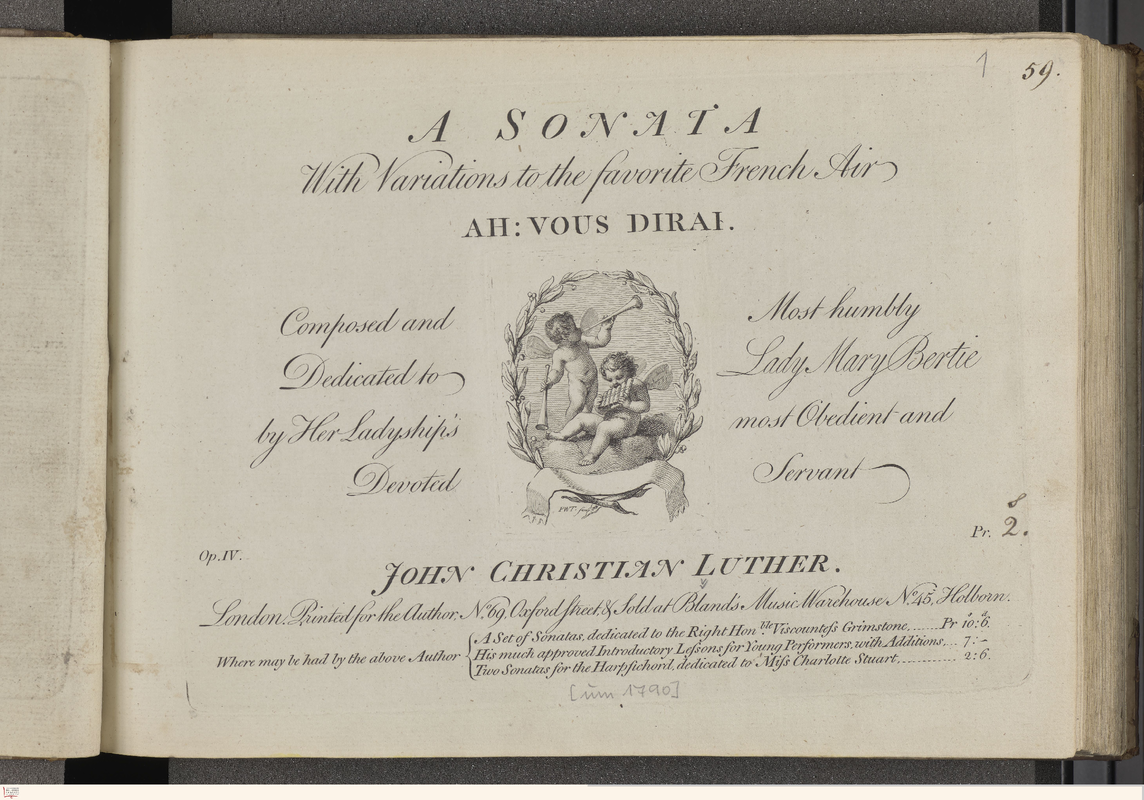 1 59.
A SONATA
With Variations to the favorite French Air
AH: VOUS DIRAI.
Composed and Most humbly
Dedicated to Lady Mary Bertie
by Her Ladyship's most Obedient and
Devoted Servant
Pr. 2.s
Op. IV.
JOHN CHRISTIAN LUTHER.
London, Printed for the Author, No. 69, Oxford street, & Sold at Bland's Music Warehouse No. 45, Holborn.
Where may be had by the above Author
A Set of Sonatas, dedicated to the Right Hon.ble Viscountess Grimstone, ...... Pr 10s:6d.
His much approved Introductory Lessons for Young Performers, with Additions... 7:-
Two Sonatas for the Harpsichord, dedicated to Miss Charlotte Stuart, ............ 2:6.
[um 1790]